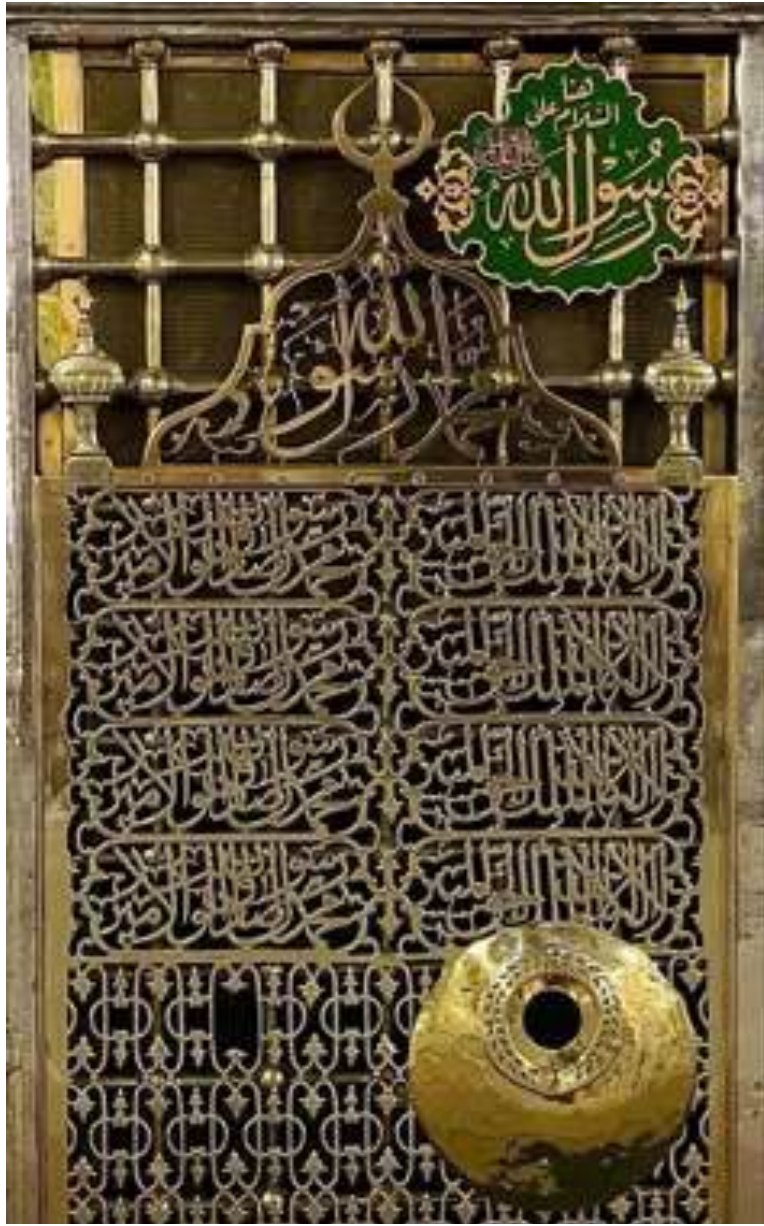 هنا
السلام على
رسول الله ﷺ
محمد رسول الله
لا إله إلا الله الملك الحق المبين محمد رسول الله الصادق الوعد الأمين
لا إله إلا الله الملك الحق المبين محمد رسول الله الصادق الوعد الأمين
لا إله إلا الله الملك الحق المبين محمد رسول الله الصادق الوعد الأمين
لا إله إلا الله الملك الحق المبين محمد رسول الله الصادق الوعد الأمين